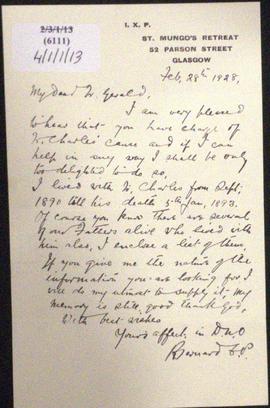 2/3/1/13
(6111)
4/1/1/13
I. X. P.
ST. MUNGO'S RETREAT
52 PARSON STREET
GLASGOW
Feb, 28th 1928.
My Dear Fr Gerald.
I am very pleased
to hear that you have charge of
Fr. Charles' cause and if I can
help in any way I shall be only
too delighted to do so.
I lived with Fr. Charles from Sept;
1890 till his death 5th Jan, 1893.
Of course you know there are several
of our Fathers alive who lived with
him also, I enclose a list of them.
If you give me the nature of the
information you are looking for I
will do my utmost to supply it, my
memory is still good thank God,
With best wishes
Yours affect. in
Bernard C.P.